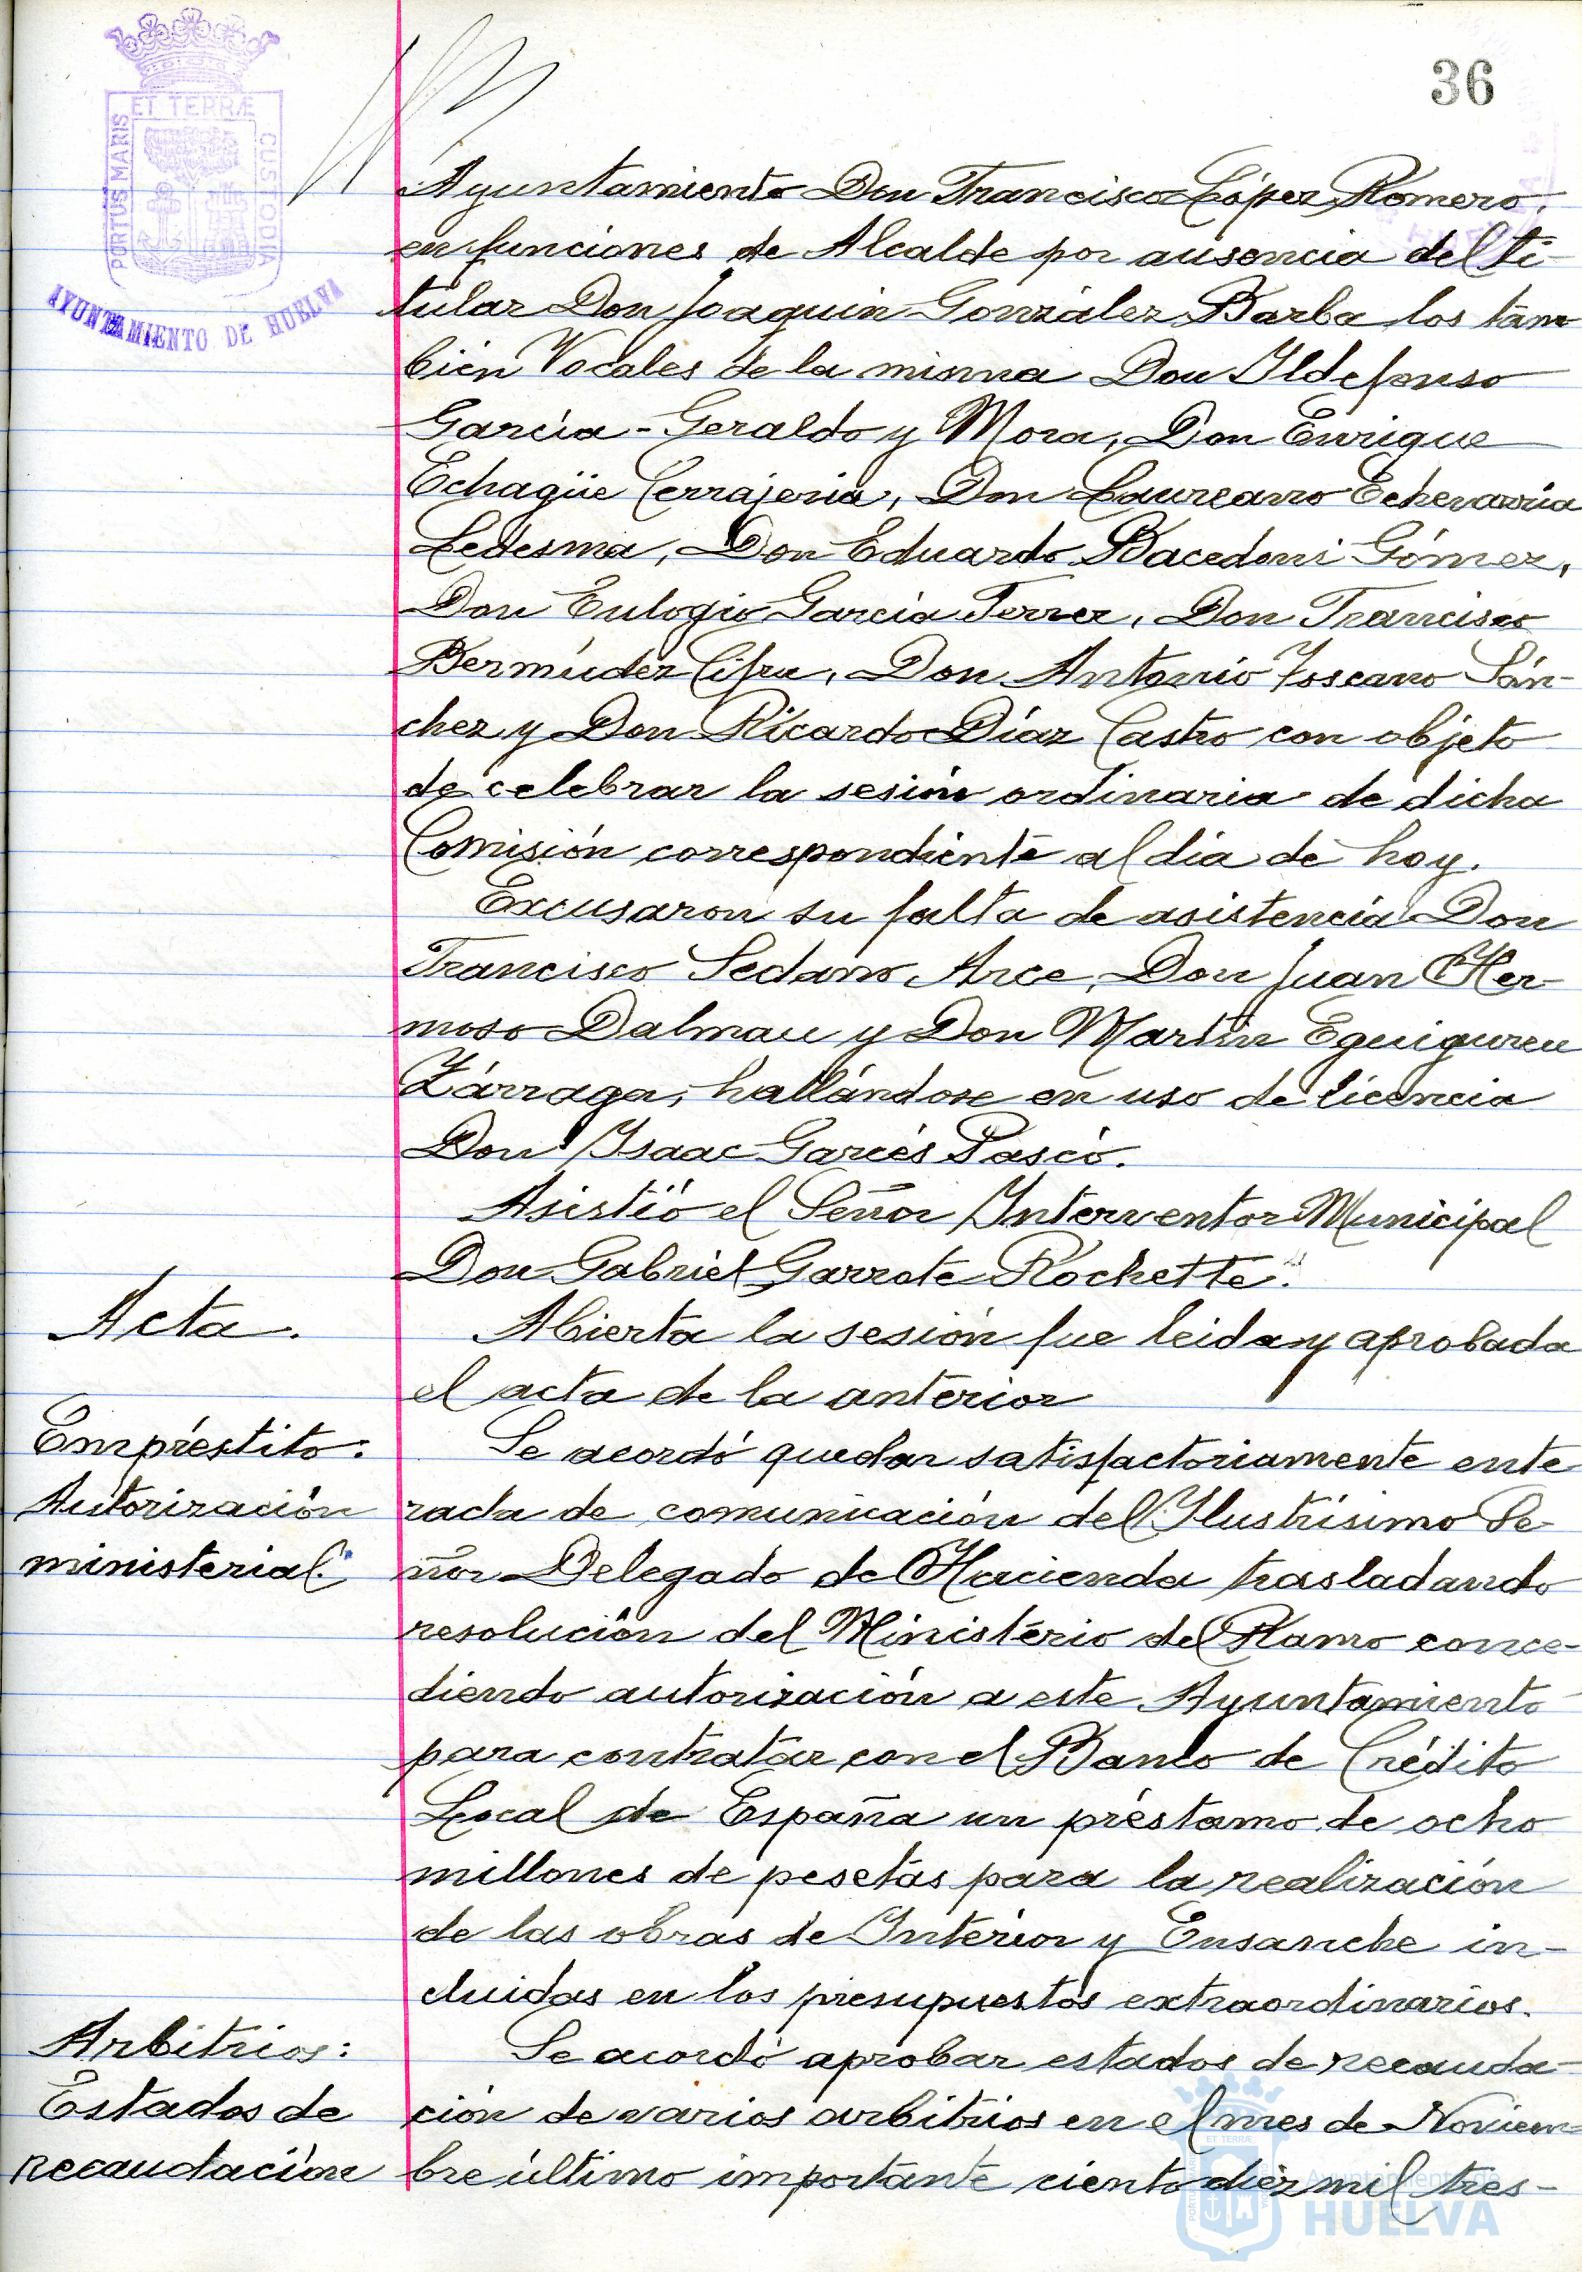 36
ET TERRÆ
PORTUS MARIS
CUSTODIA
AYUNTAMIENTO DE HUELVA
Ayuntamiento Don Francisco López Romero,
en funciones de Alcalde por ausencia del ti-
tular Don Joaquin González Barba los tam
bién Vocales de la misma Don Ildefonso
García-Geraldo y Mora, Don Enrique
Echagüe Cerrajeria, Don Laureano Echevarría
Ledesma, Don Eduardo Bacedoni Gómez,
Don Eulogio García Ferrer, Don Francisco
Bermúdez Cifru, Don Antonio Toscano Sán-
chez y Don Ricardo Díaz Castro con objeto
de celebrar la sesión ordinaria de dicha
Comisión correspondiente al dia de hoy.
Excusaron su falta de asistencia Don
Francisco Sedano Arce, Don Juan Her-
moso Dalmau y Don Martín Eguiguren
Zárraga, hallándose en uso de licencia
Don Isaac Garcés Pascó.
Asistió el Señor Interventor Municipal
Don Gabriel Garrote Rochette.
Acta.
Abierta la sesión fue leida y aprobada
el acta de la anterior
Empréstito:
Autorización
ministerial.
Se acordó quedar satisfactoriamente ente
rada de comunicación del Ilustrísimo Se
ñor Delegado de Hacienda trasladando
resolución del Ministerio del Ramo conce-
diendo autorización a este Ayuntamiento
para contratar con el Banco de Crédito
Local de España un préstamo de ocho
millones de pesetas para la realización
de las obras de Interior y Ensanche in-
cluidas en los presupuestos extraordinarios.
Arbitrios:
Estados de
recaudación
Se acordó aprobar estados de recauda-
ción de varios arbitrios en el mes de Noviem-
bre último importante ciento diez mil tres-
Ayuntamiento de
HUELVA